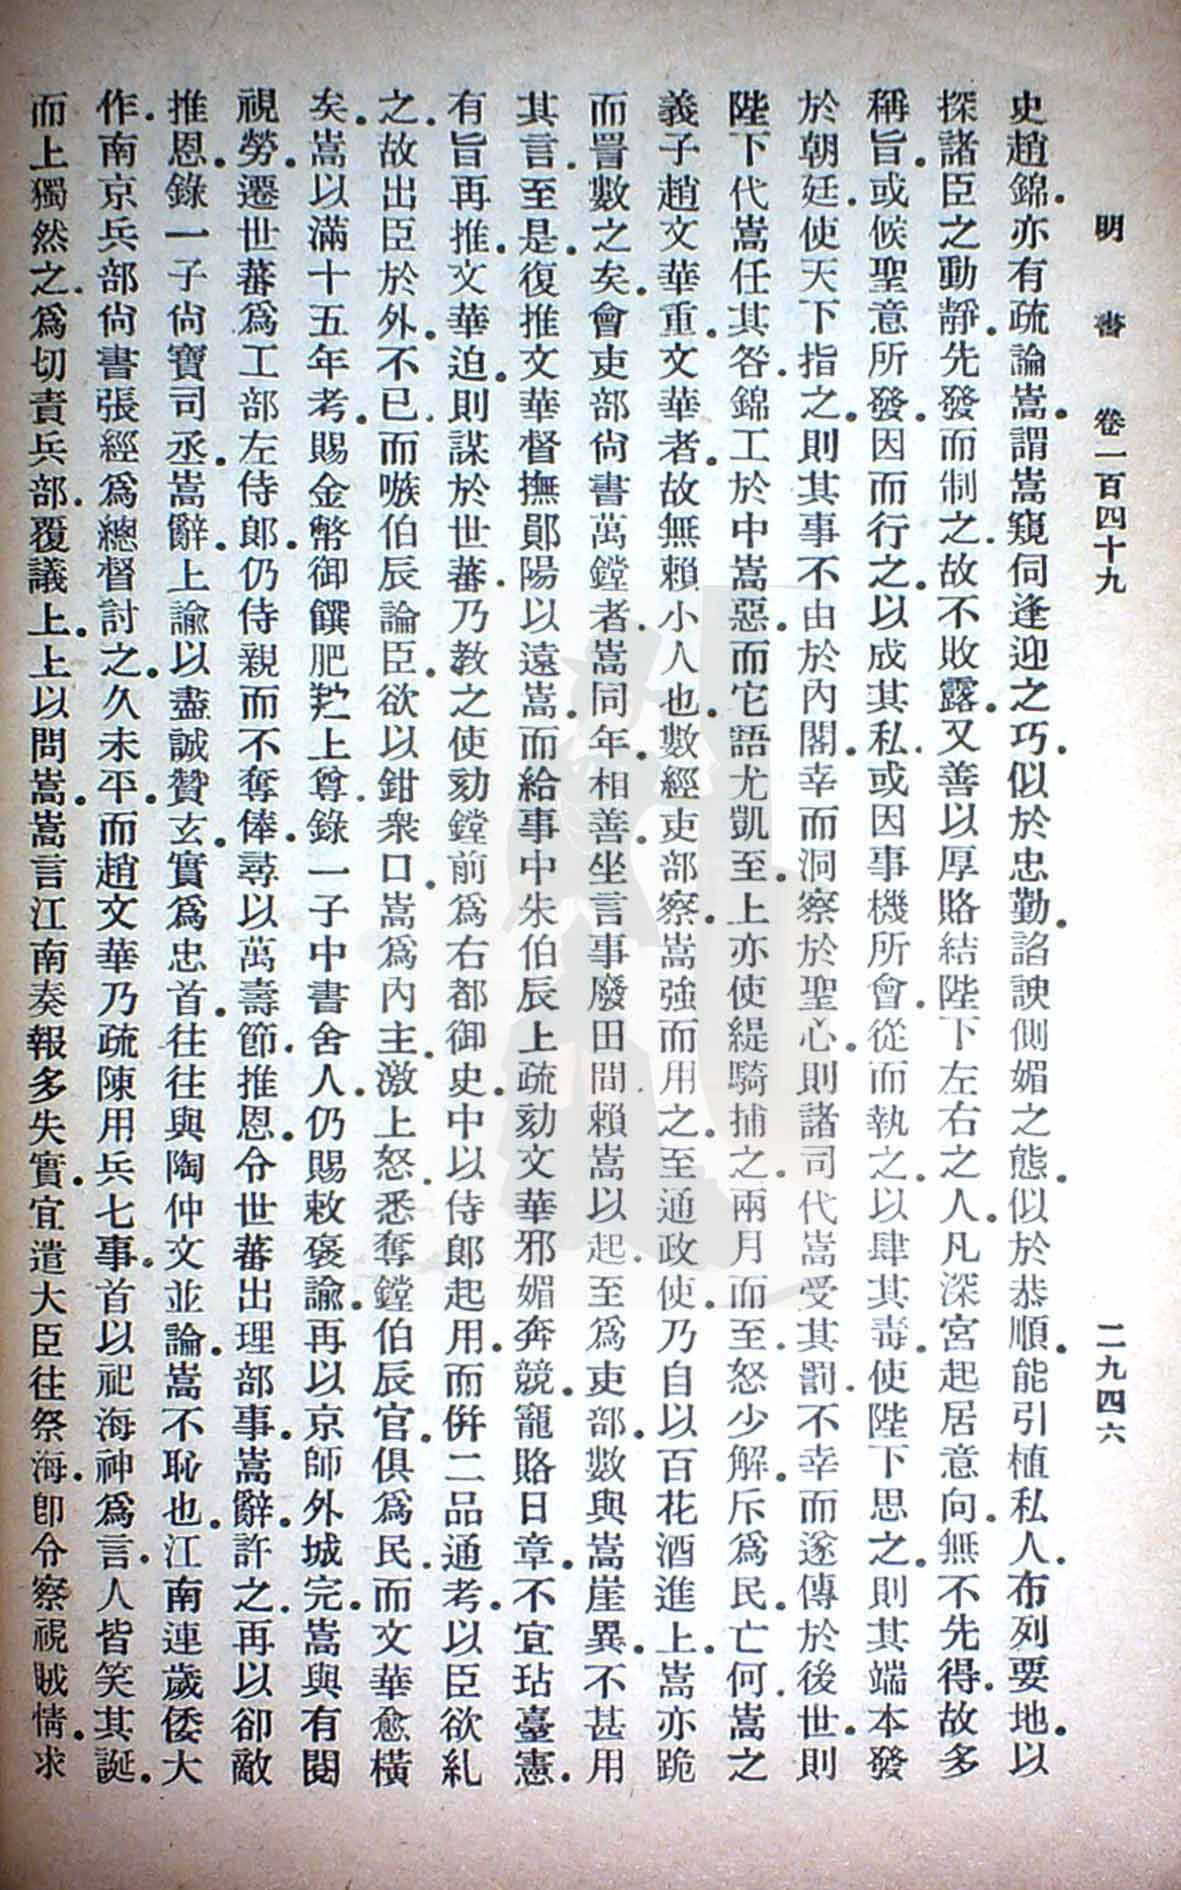 明書 卷一百四十九 二九四六
史趙錦。亦有疏論嵩。謂嵩窺伺逢迎之巧。似於忠勤。諂諛側媚之態。似於恭順。能引植私人。布列要地。以
探諸臣之動靜。先發而制之。故不敗露。又善以厚賂結陛下左右之人。凡深宮起居意向。無不先得。故多
稱旨。或候聖意所發。因而行之。以成其私。或因事機所會。從而執之。以肆其毒。使陛下思之。則其端本發
於朝廷。使天下指之。則其事不由於內閣。幸而洞察於聖心。則諸司代嵩受其罰。不幸而遂傳於後世。則
陛下代嵩任其咎。錦工於中嵩惡。而它語尤凱至。上亦使緹騎捕之。兩月而至。怒少解。斥為民。亡何。嵩之
義子趙文華重。文華者。故無賴小人也。數經吏部察。嵩強而用之。至通政使。乃自以百花酒進上。嵩亦跪
而詈數之矣。會吏部尙書萬鏜者。嵩同年。相善。坐言事廢田間。賴嵩以起。至為吏部。數與嵩崖異。不甚用
其言。至是。復推文華督撫鄖陽以遠嵩。而給事中朱伯辰上疏。劾文華邪媚奔競。寵賂日章。不宜玷臺憲。
有旨再推。文華迫。則謀於世蕃。乃教之使劾鏜前為右都御史。中以侍郞起用。而倂二品通考。以臣欲糺
之。故出臣於外。不已。而嗾伯辰論臣。欲以鉗衆口。嵩為內主。激上怒。悉奪鏜伯辰官。俱為民。而文華愈橫
矣。嵩以滿十五年考。賜金幣御饌肥羜上尊。錄一子中書舍人。仍賜敕褒諭。再以京師外城完。嵩與有閱
視勞。遷世蕃為工部左侍郞。仍侍親而不奪俸。尋以萬壽節。推恩。令世蕃出理部事。嵩辭。許之。再以卻敵
推恩。錄一子尙寶司丞。嵩辭。上諭以盡誠贊玄。實為忠首。往往與陶仲文並論。嵩不恥也。江南連歲倭大
作。南京兵部尙書張經為總督討之。久未平。而趙文華乃疏陳用兵七事。首以祀海神為言。人皆笑其誕。
而上獨然之。為切責兵部。覆議上。上以問嵩。嵩言江南奏報多失實。宜遣大臣往祭海。卽令察視賊情。求